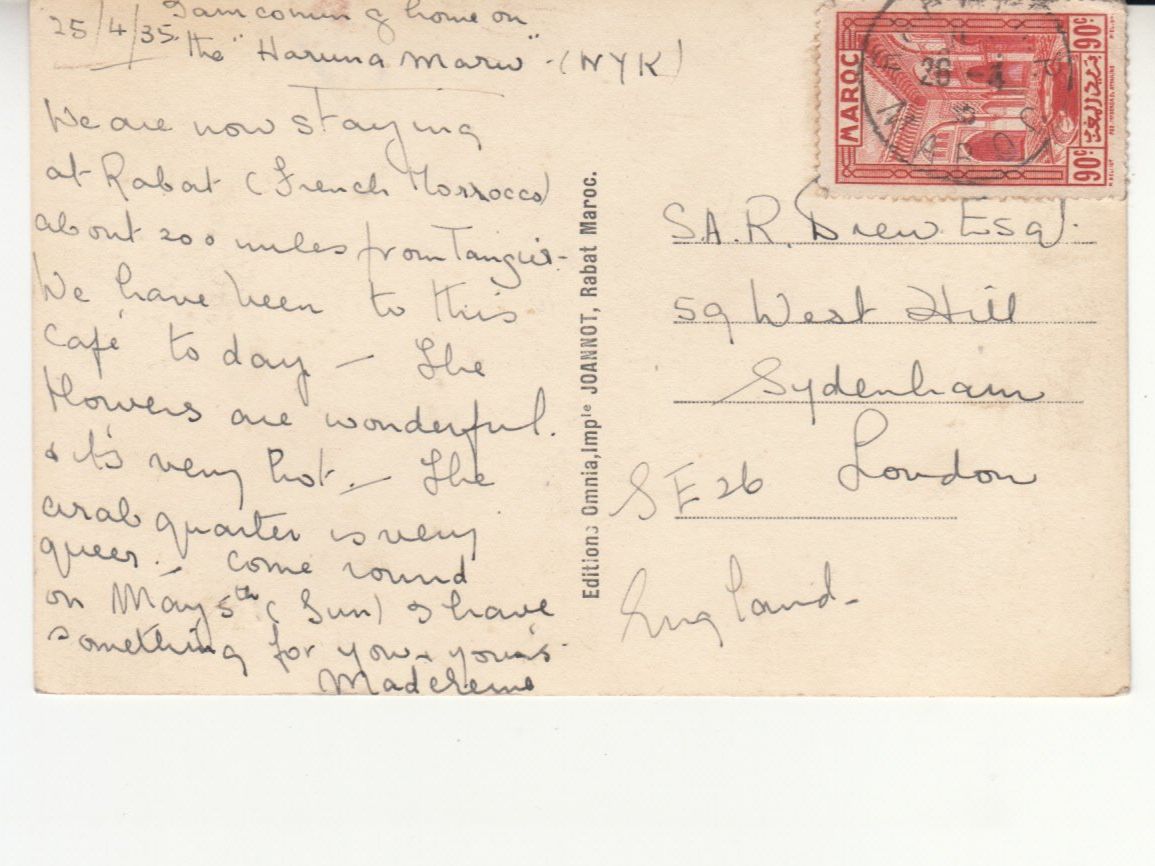 25/4/35. I am coming home on
the "Haruna Maru" - (NYK)
We are now staying
at Rabat (French Morrocco)
about 200 miles from Tangier.
We have been to this
Café to day - The
flowers are wonderful.
& it's very hot. - The
arab quarter is very
queer. - Come round
on May 5th (Sun) I have
something for you. yours
Editions Omnia, Impie JOANNOT, Rabat Maroc.
MAROC
90c
90c
26 - 4
35
MAROC
S.A.R. Drew Esq.
59 West Hill
Sydenham
London
SE 26
England -